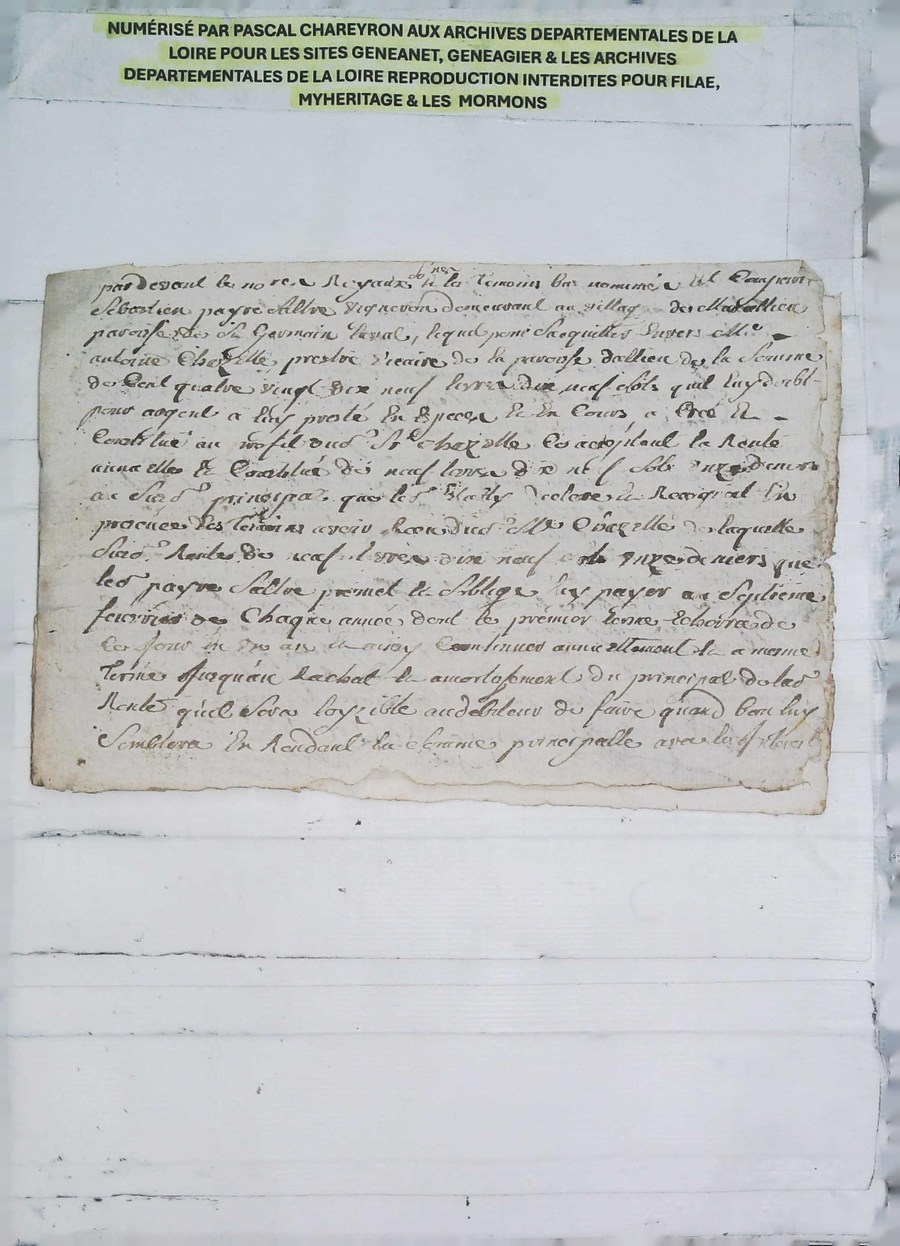 NUMÉRISÉ PAR PASCAL CHAREYRON AUX ARCHIVES DEPARTEMENTALES DE LA
LOIRE POUR LES SITES GENEANET, GENEAGIER & LES ARCHIVES
DEPARTEMENTALES DE LA LOIRE REPRODUCTION INTERDITES POUR FILAE,
MYHERITAGE & LES MORMONS
par devant le no.re Royaux les Temoins bas nommés
Sebastien payre vigneron demeurant au village de
paroisse de St Germain Laval, lequel pour Envers Mre
antoine Chazelle prestre vicaire de la paroisse dallieu de la somme
de Cent quatre vingt dix neuf livres dix neuf sols quil luy doibt
pour argent a luy presté En Especes Et En Cours a Créé Et
Constitué au profit dud. Sr Chazelle Ce acceptant la Rente
annuelle Et Constitué de neuf livres dix neuf sols onze deniers
au susd. principal que led. declare
presence des Temoins avoir Mre Chazelle de laquelle
susd. Rente de neuf livres dix neuf sols onze deniers que
led. payre promet Et soblige luy payer au septieme
feuvrier de Chaque année dont le premier terme Echoira de
Ce jour En un an Et ainsy Continuer annuellement Et a mesme
Terme jusquau Rachat Et amortissement du principal de lad.
Rente quil sera loyzible au debiteur de faire quand bon luy
semblera En Rendant la somme principalle avec les